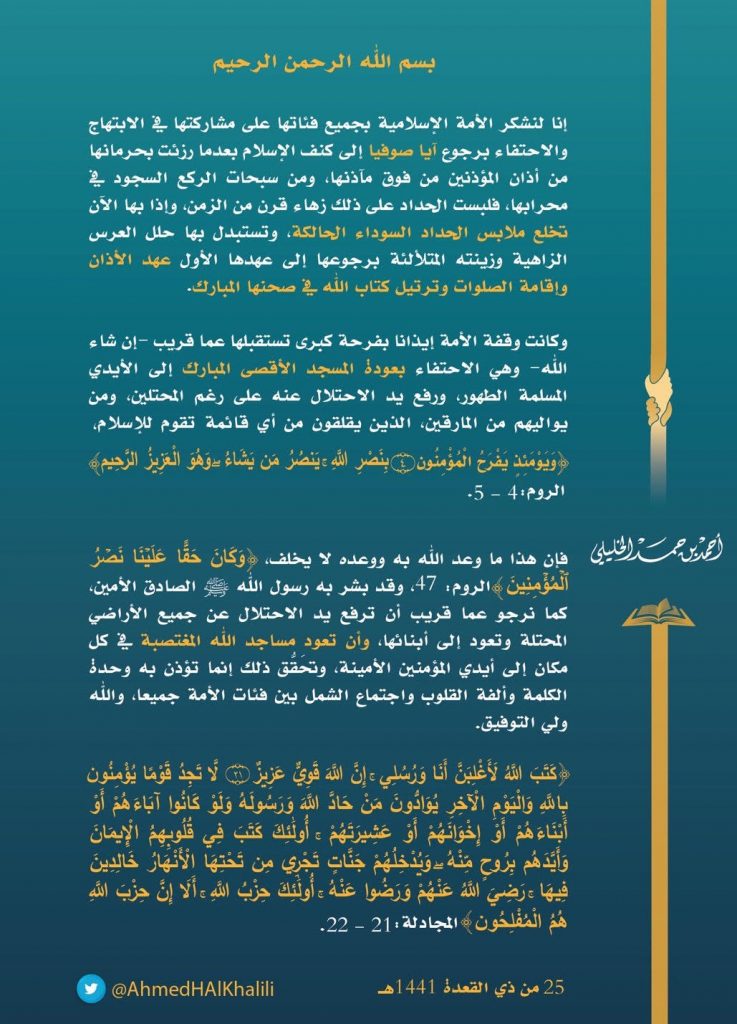 بسم الله الرحمن الرحيم
إنا لنشكر الأمة الإسلامية بجميع فئاتها على مشاركتها في الابتهاج
والاحتفاء برجوع آيا صوفيا إلى كنف الإسلام بعدما رزئت بحرمانها
من أذان المؤذنين من فوق مآذنها، ومن سبحات الركع السجود في
محرابها، فلبست الحداد على ذلك زهاء قرن من الزمن، وإذا بها الآن
تخلع ملابس الحداد السوداء الحالكة، وتستبدل بها حلل العرس
الزاهية وزينته المتلألئة برجوعها إلى عهدها الأول عهد الأذان
وإقامة الصلوات وترتيل كتاب الله في صحنها المبارك.
وكانت وقفة الأمة إيذانا بفرحة كبرى تستقبلها عما قريب -إن شاء
الله- وهي الاحتفاء بعودة المسجد الأقصى المبارك إلى الأيدي
المسلمة الطهور، ورفع يد الاحتلال عنه على رغم المحتلين، ومن
يواليهم من المارقين، الذين يقلقون من أي قائمة تقوم للإسلام،
﴿وَيَوْمَئِذٍ يَفْرَحُ الْمُؤْمِنُونَ ۝٤ بِنَصْرِ اللَّهِ ۚ يَنصُرُ مَن يَشَاءُ ۖ وَهُوَ الْعَزِيزُ الرَّحِيمُ﴾
الروم: 4 - 5.
فإن هذا ما وعد الله به ووعده لا يخلف، ﴿وَكَانَ حَقًّا عَلَيْنَا نَصْرُ
الْمُؤْمِنِينَ﴾ الروم: 47، وقد بشر به رسول الله ﷺ الصادق الأمين،
كما نرجو عما قريب أن ترفع يد الاحتلال عن جميع الأراضي
المحتلة وتعود إلى أبنائها، وأن تعود مساجد الله المغتصبة في كل
مكان إلى أيدي المؤمنين الأمينة، وتحَقُّق ذلك إنما تؤذن به وحدة
الكلمة وألفة القلوب واجتماع الشمل بين فئات الأمة جميعا، والله
ولي التوفيق.
﴿كَتَبَ اللَّهُ لَأَغْلِبَنَّ أَنَا وَرُسُلِي ۚ إِنَّ اللَّهَ قَوِيٌّ عَزِيزٌ ۝٢١ لَّا تَجِدُ قَوْمًا يُؤْمِنُونَ
بِاللَّهِ وَالْيَوْمِ الْآخِرِ يُوَادُّونَ مَنْ حَادَّ اللَّهَ وَرَسُولَهُ وَلَوْ كَانُوا آبَاءَهُمْ أَوْ
أَبْنَاءَهُمْ أَوْ إِخْوَانَهُمْ أَوْ عَشِيرَتَهُمْ ۚ أُولَٰئِكَ كَتَبَ فِي قُلُوبِهِمُ الْإِيمَانَ
وَأَيَّدَهُم بِرُوحٍ مِّنْهُ ۖ وَيُدْخِلُهُمْ جَنَّاتٍ تَجْرِي مِن تَحْتِهَا الْأَنْهَارُ خَالِدِينَ
فِيهَا ۚ رَضِيَ اللَّهُ عَنْهُمْ وَرَضُوا عَنْهُ ۚ أُولَٰئِكَ حِزْبُ اللَّهِ ۚ أَلَا إِنَّ حِزْبَ اللَّهِ
هُمُ الْمُفْلِحُونَ﴾ المجادلة: 21 - 22.
أحمد بن حمد الخليلي
25 من ذي القعدة 1441هـ
@AhmedHAlKhalili